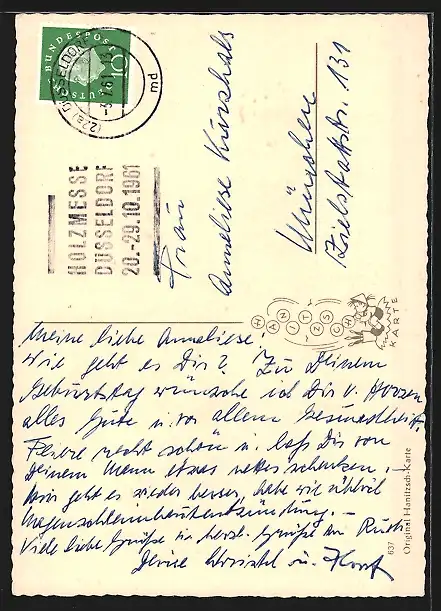 DEUTSCHE BUNDESPOST
10
(22a) DÜSSELDORF
md
HOLZMESSE
DÜSSELDORF
20.-29.10.1961
Frau
Anneliese
München
Zielstattstr. 131
HANITZSCH
KARTE
Meine liebe Anneliese!
Wie geht es Dir? Zu Deinem
Geburtstag wünsche ich Dir v. Herzen
alles Gute u. vor allem Gesundheit.
Feiere recht schön u. laß Dir von
Deinem Mann etwas nettes schenken. –
geht es wieder besser, habe wie üblich
Magenschleimhautentzündung. –
Viele liebe Grüße u. herzl. Grüße an Rudi
Deine Christel u.
637 Original Hanitzsch-Karte